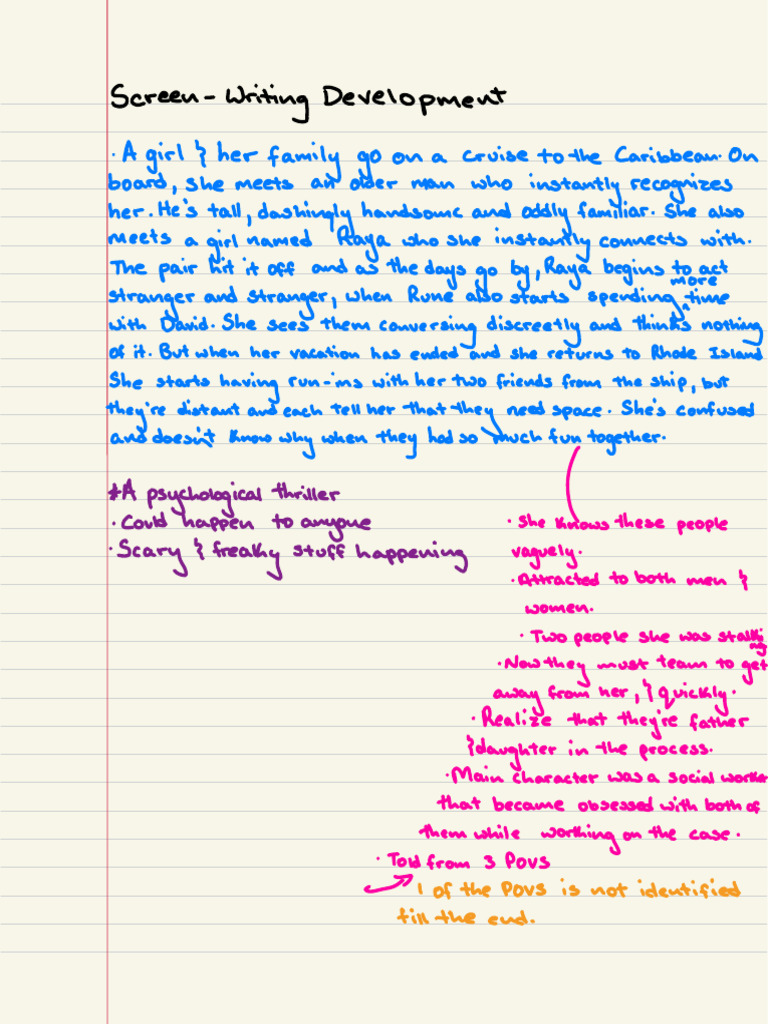 Screen-Writing Development
· A girl & her family go on a cruise to the Caribbean. On
board, she meets an older man who instantly recognizes
her. He's tall, dashingly handsome and oddly familiar. She also
meets a girl named Raya who she instantly connects with.
The pair hit it off and as the days go by, Raya begins to act
stranger and stranger, when Rune also starts spending more time
with David. She sees them conversing discreetly and thinks nothing
of it. But when her vacation has ended and she returns to Rhode Island
She starts having run-ins with her two friends from the ship, but
they're distant and each tell her that they need space. She's confused
and doesn't know why when they had so much fun together.
*A psychological thriller
· Could happen to anyone
· Scary & freaky stuff happening
· She knows these people
vaguely.
· Attracted to both men &
women.
· Two people she was stalking
· Now they must team to get
away from her, & quickly.
· Realize that they're father
& daughter in the process.
· Main character was a social worker
that became obsessed with both of
them while working on the case.
· Told from 3 POVs
1 of the POVs is not identified
till the end.